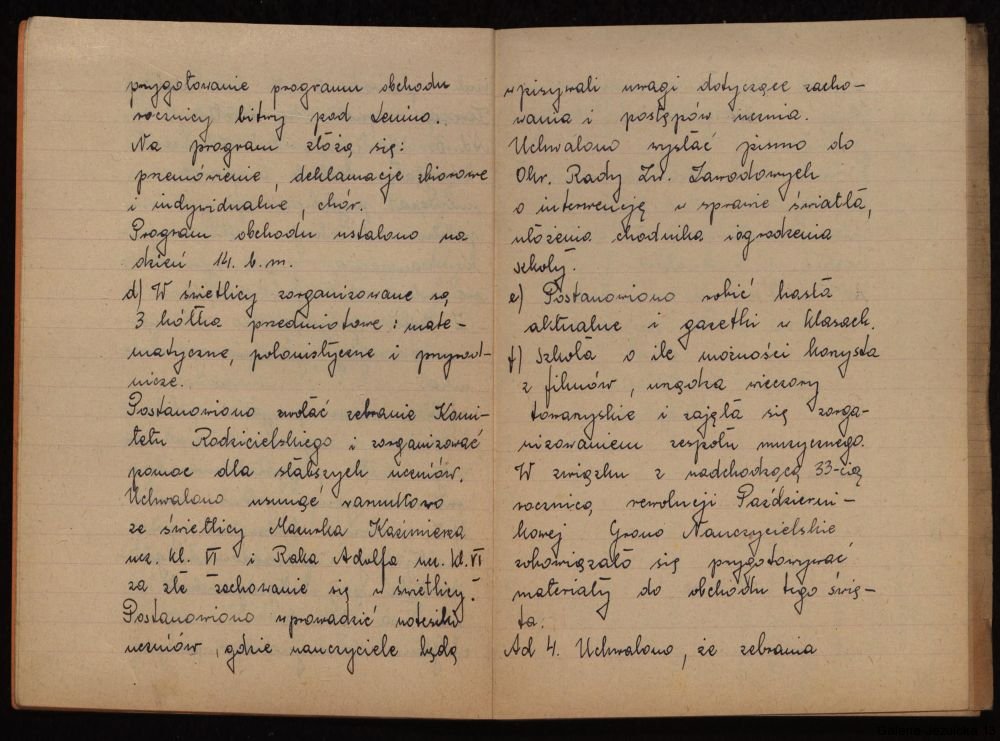 przygotowanie programu obchodu
rocznicy bitwy pod Lenino.
Na program złożą się:
przemówienie, deklamacje zbiorowe
i indywidualne, chór.
Program obchodu ustalono na
dzień 14. b.m.
d) W świetlicy zorganizowane są
3 kółka przedmiotowe: mate-
matyczne, polonistyczne i przyrod-
nicze.
Postanowiono zwołać zebranie Komi-
tetu Rodzicielskiego i zorganizować
pomoc dla słabszych uczniów.
Uchwalono usunąć warunkowo
ze świetlicy Mazurka Kazimierza
ucz. kl. VI i Raka Adolfa ucz. kl. VI
za złe zachowanie się w świetlicy.
Postanowiono wprowadzić notesiki
uczniów, gdzie nauczyciele będą
wpisywali uwagi dotyczące zacho-
wania i postępów ucznia.
Uchwalono wysłać pismo do
Okr. Rady Zw. Zawodowych
o interwencję w sprawie światła,
ułożenia chodnika i ogrodzenia
szkoły.
e) Postanowiono robić hasła
aktualne i gazetki w klasach.
f) Szkoła o ile możności korzysta
z filmów, urządza wieczory
towarzyskie i zajęła się zorga-
nizowaniem zespołu muzycznego.
W związku z nadchodzącą 33-cią
rocznicą rewolucji Październi-
kowej Grono Nauczycielskie
zobowiązało się przygotowywać
materiały do obchodu tego świę-
ta.
Ad 4. Uchwalono, że zebrania